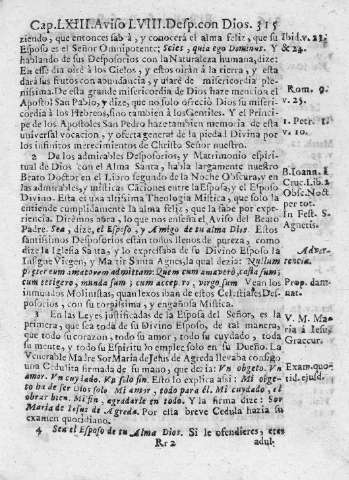 Cap. LXIII. Aviso LVIII. Desp. con Dios. 315
ziendo, que entonces sab à, y conocerà el alma feliz, que su
Esposo es el Señor Omnipotente; Scies, quia ego Dominus. Y
hablando de sus Desposorios con la Naturaleza humana, dize:
En esse dia oirè à los Cielos, y estos oiràn à la tierra, y esta
darà sus frutos con abundancia, y usarè de misericordia
nissima. De esta grande misericordia de Dios haze mencion el
Apostol San Pablo, y dize, que no solo ofreciò Dios su miseri-
cordia à los Hebreos, sino tambien à los Gentiles. Y el Princi-
pe de los Apostoles San Pedro haze tambien memoria de esta
universal vocacion, y oferta general de la piedad Divina por
los infinitos merecimientos de Christo Señor nuestro.
2 De los admirables Desposorios, y Matrimonio espiri-
tual de Dios con el Alma Santa, habla largamente nuestro
Beato Doctor en el Libro segundo de la Noche Obscura, y en
las admirables, y misticas Canciones entre la Esposa, y el Esposo
Divino. Esta es una altissima Theologia Mistica, que solo la
entiende cumplidamente la alma feliz, que la sabe por expe-
riencia. Dirèmos aora, lo que nos enseña el Aviso del Beato
Padre. Sea, dize, el Esposo, y Amigo de tu alma Dios. Estos
santissimos Desposorios estàn todos llenos de pureza, como
dize la Iglesia Santa, y lo expressaba de su Divino Esposo la
Insigne Virgen, y Martir Santa Agnès, la qual dezia: Nullum
præter eum amatorem admittam: Quem cum amavero, casta sum;
cum tetigero, munda sum; cum accepero, virgo sum. Vean los
inmundos Molinistas, quan lexos iban de estos Celestiales Des-
posorios, con su torpissima, y engañosa Mistica.
3 En las Leyes justificadas de la Esposa del Señor, es la
primera, que sea toda de su Divino Esposo, de tal manera,
que todo su corazon, todo su amor, todo su cuydado, toda
su mente, y todo su Espiritu lo emplee solo en su Dueño. La
Venerable Madre Sor Maria de Jesus de Agreda llevaba consigo
una Cedulita firmada de su mano, que dezia: Vn objeto. Vn
amor. Vn cuydado. Vn solo fin. Esto lo explica assi: Mi obje-
to ha de ser Dios solo. Mi amor, todo para èl. Mi cuydado, el
obrar bien. Mi fin, agradarle en todo. Y la firma dize: Sor
Maria de Jesus de Agreda. Por esta breve Cedula hazia su
examen quotidiano.
4 Sea el Esposo de tu Alma Dios. Si le ofendieres, eres
Rr 2 adul-
Ibid. v. 21.
& 24.
Rom. 9.
v. 25.
1. Petr. 1.
v. 10.
B. Ioann. à
Cruc. Lib. 2
Obsc. Noct
per tot.
In Fest. S.
Agnetis.
Adver-
tencia.
Prop. dam-
nat.
V. M. Ma-
ria à Iesu,
Graccur.
Exam. quo-
tid. ejusd.